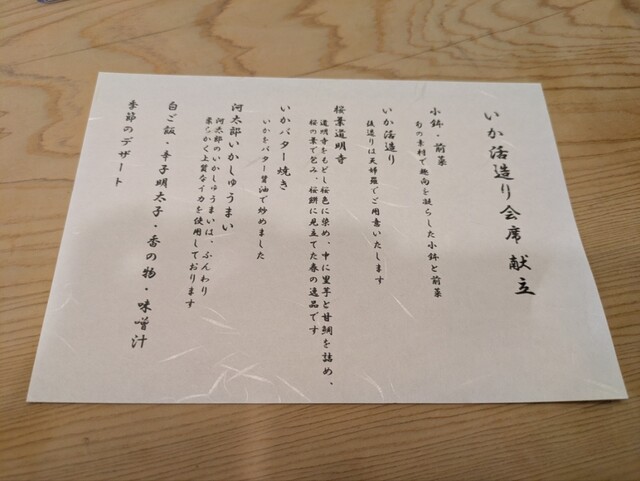 いか活造り会席 献立
小鉢・前菜
旬の素材で趣向を凝らした小鉢と前菜
いか活造り
後造りは天婦羅でご用意いたします
桜葉道明寺
道明寺をもどし桜色に染め、中に里芋と甘鯛を詰め、
桜の葉で包み、桜餅に見立てた春の逸品です
いかバター焼き
いかをバター醤油で炒めました
河太郎いかしゅうまい
河太郎のいかしゅうまいは、ふんわり
柔らかく上質なイカを使用しております
白ご飯・辛子明太子・香の物・味噌汁
季節のデザート